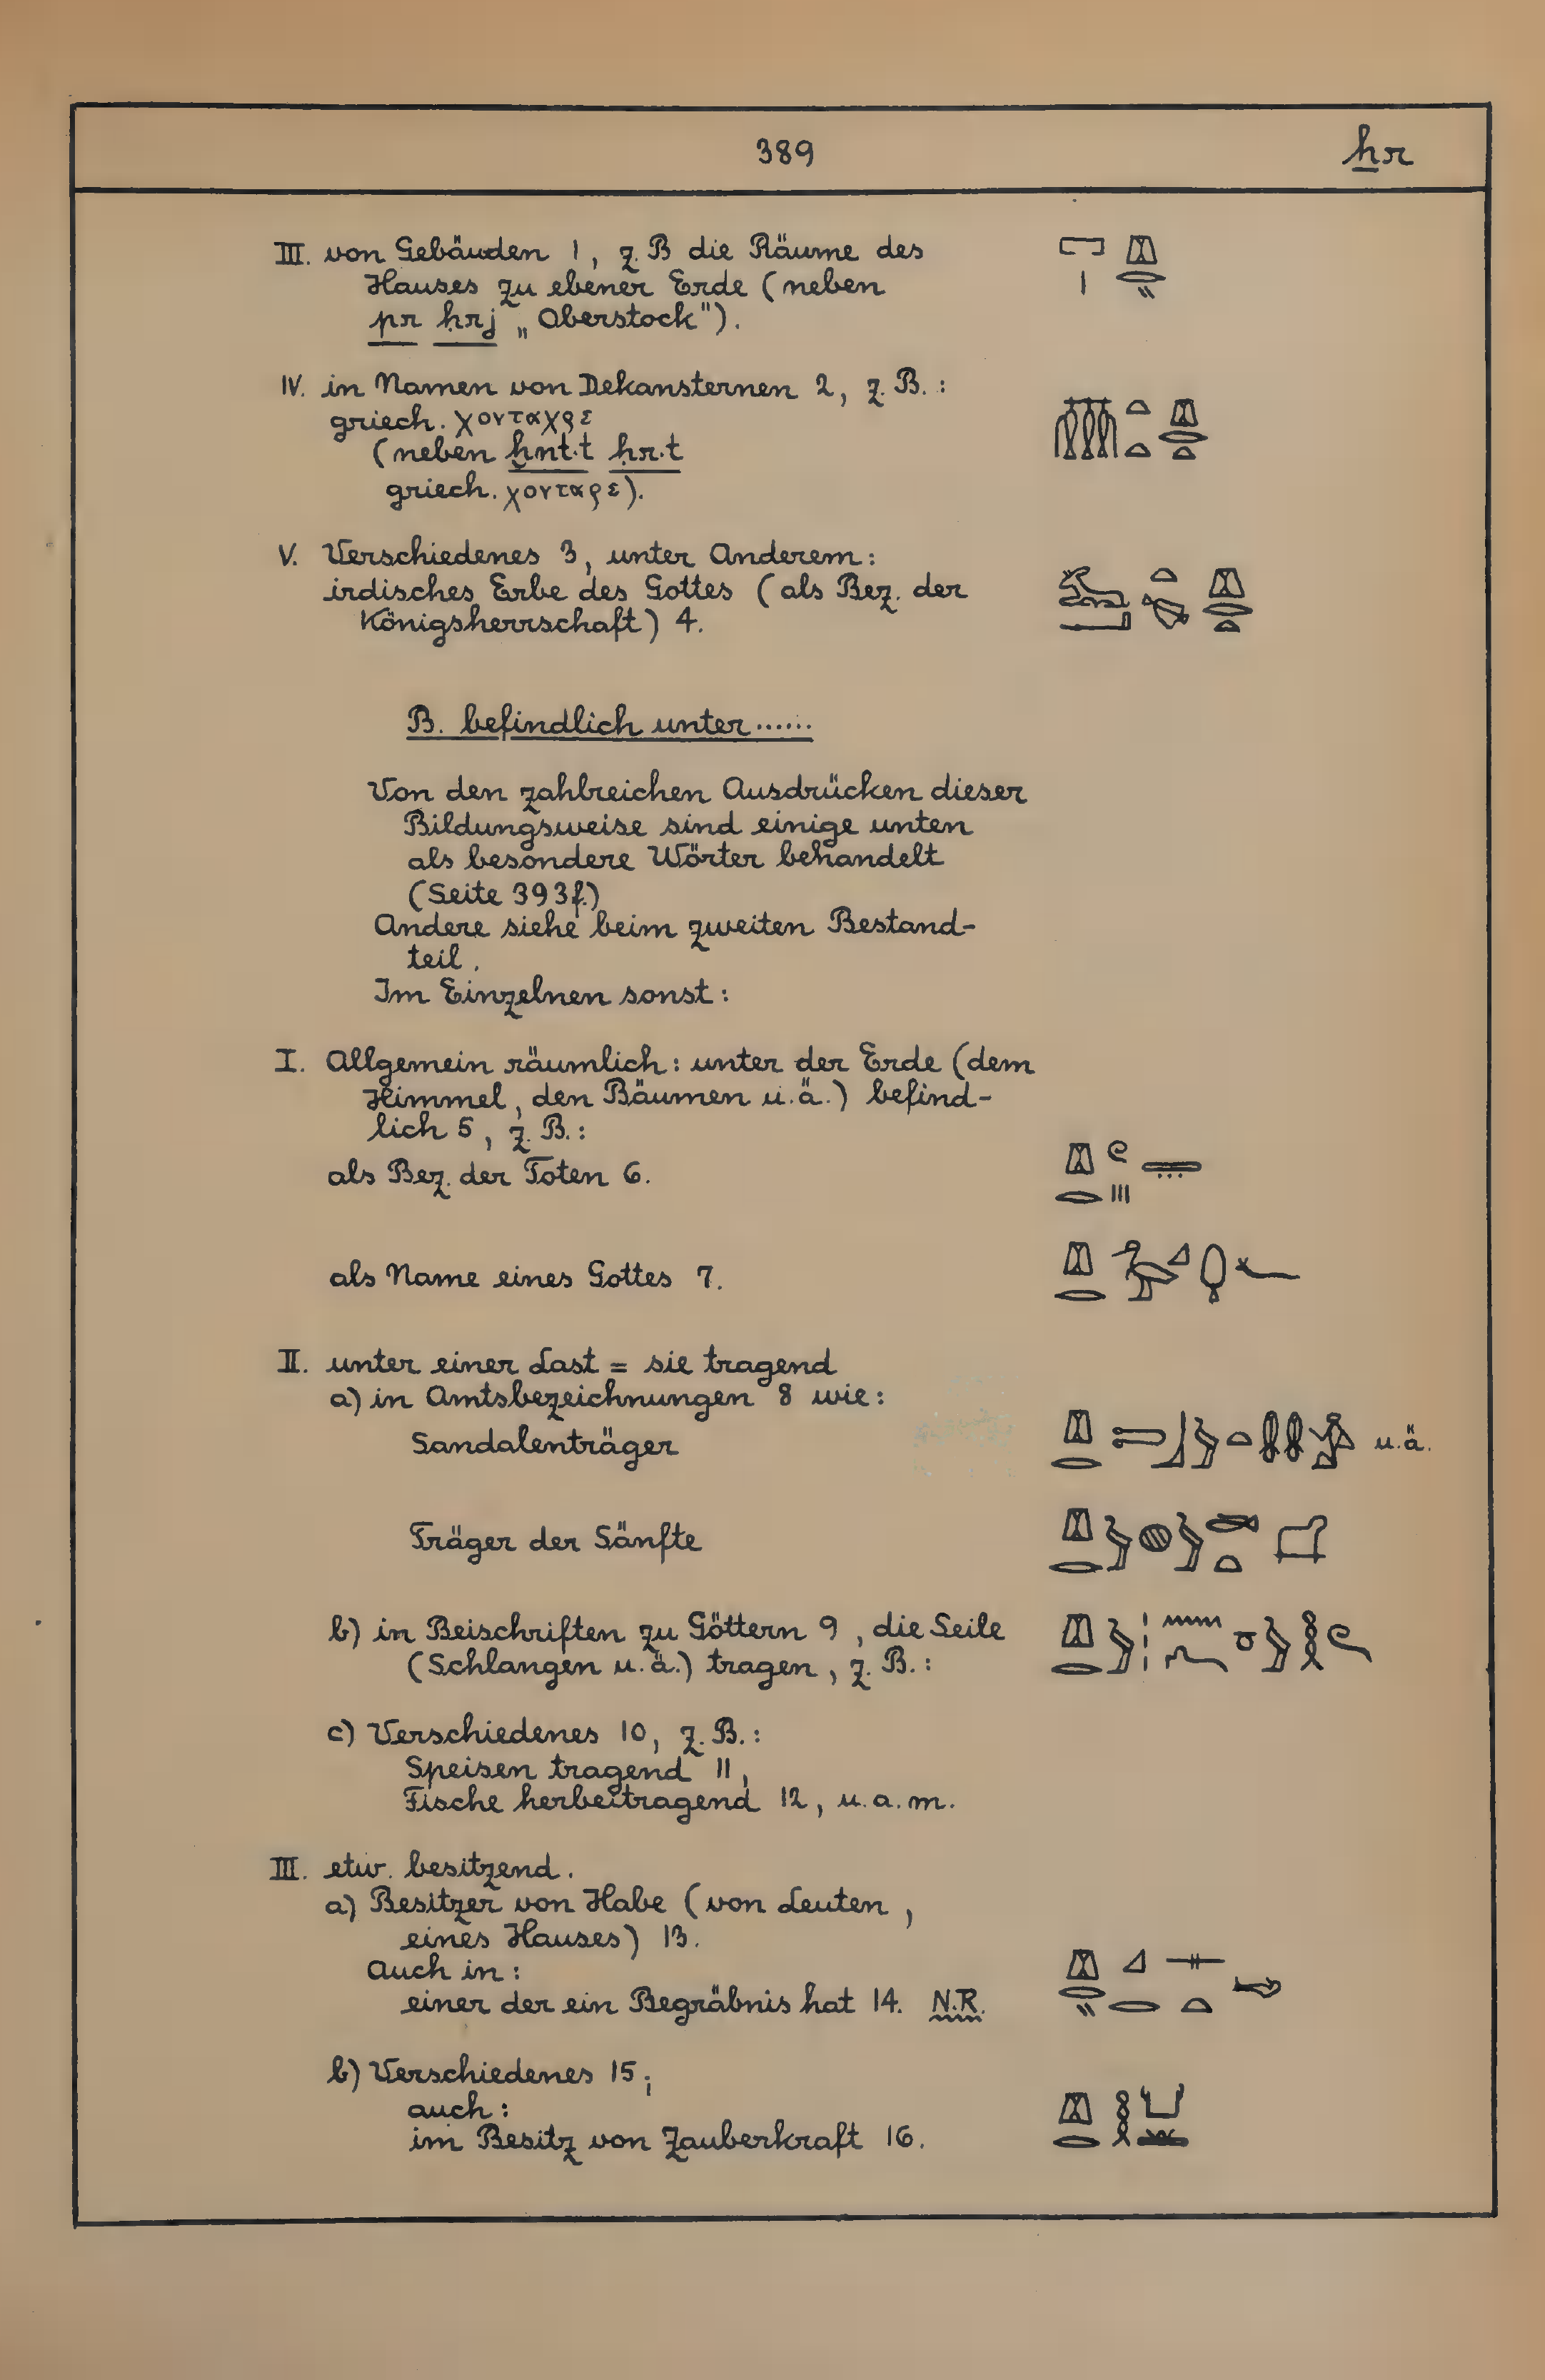 389
ẖr
III. von Gebäuden 1, z. B die Räume des
Hauses zu ebener Erde (neben
pr ḥrj „Oberstock").
IV. in Namen von Dekansternen 2, z. B.:
griech. χονταχρε
(neben ḫnt.t ḥr.t
griech. χονταρε).
V. Verschiedenes 3, unter Anderem:
irdisches Erbe des Gottes (als Bez. der
Königsherrschaft) 4.
B. befindlich unter......
Von den zahlreichen Ausdrücken dieser
Bildungsweise sind einige unten
als besondere Wörter behandelt
(Seite 393f.)
Andere siehe beim zweiten Bestand-
teil.
Im Einzelnen sonst:
I. Allgemein räumlich: unter der Erde (dem
Himmel, den Bäumen u.ä.) befind-
lich 5, z. B.:
als Bez. der Toten 6.
als Name eines Gottes 7.
II. unter einer Last = sie tragend
a) in Amtsbezeichnungen 8 wie:
Sandalenträger u.ä.
Träger der Sänfte
b) in Beischriften zu Göttern 9, die Seile
(Schlangen u.ä.) tragen, z. B.:
c) Verschiedenes 10, z. B.:
Speisen tragend 11,
Fische herbeitragend 12, u.a.m.
III. etw. besitzend.
a) Besitzer von Habe (von Leuten,
eines Hauses) 13.
Auch in:
einer der ein Begräbnis hat 14. N.R.
b) Verschiedenes 15;
auch:
im Besitz von Zauberkraft 16.